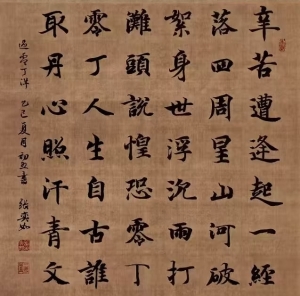 辛苦遭逢起一經
落四周星山河破
絮身世浮沉雨打
灘頭說惶恐零丁
零丁人生自古誰
取丹心照汗青文
過零丁洋 巳夏月初五書 張